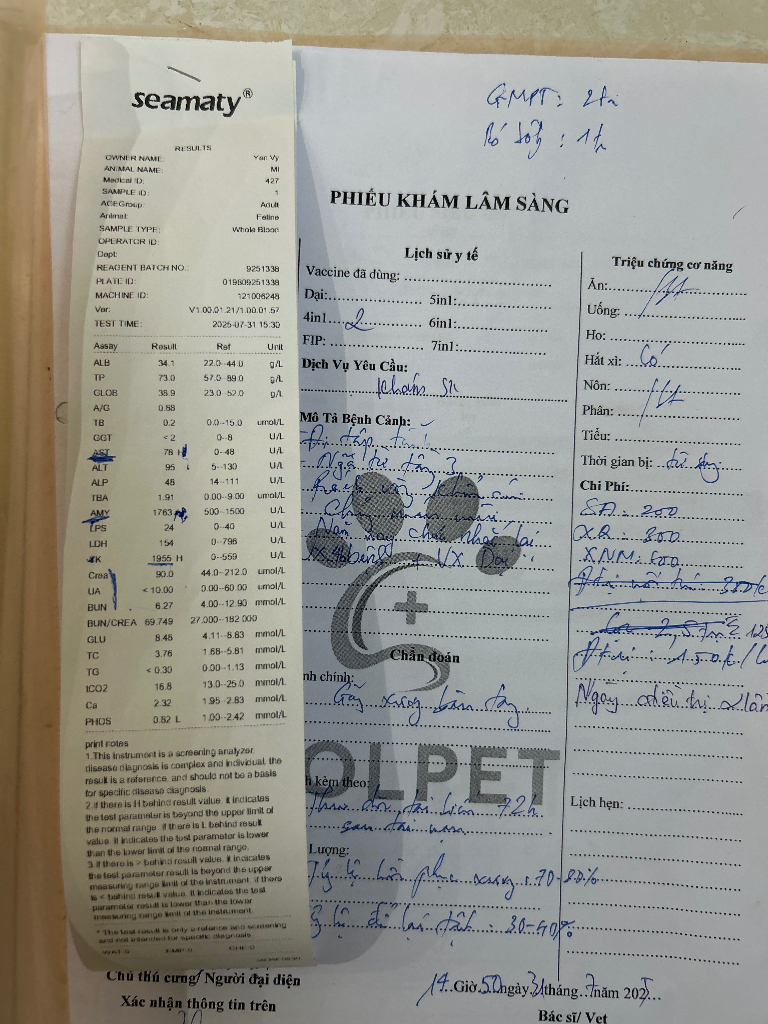 seamaty®
RESULTS
OWNER NAME: Yan Vy
ANIMAL NAME: MI
Medical ID: 427
SAMPLE ID: 1
AGEGroup: Adult
Animal: Feline
SAMPLE TYPE: Whole Blood
OPERATOR ID:
Dept:
REAGENT BATCH NO.: 9251338
PLATE ID: 019609251338
MACHINE ID: 121006248
Ver: V1.00.01.21/1.00.01.57
TEST TIME: 2025-07-31 15:30
Assay Result Ref Unit
ALB 34.1 22.0--44.0 g/L
TP 73.0 57.0--89.0 g/L
GLOB 38.9 23.0--52.0 g/L
A/G 0.88
TB 0.2 0.0--15.0 umol/L
GGT < 2 0--8 U/L
AST 78 H 0--48 U/L
ALT 95 5--130 U/L
ALP 48 14--111 U/L
TBA 1.91 0.00--9.00 umol/L
AMY 1763 H 500--1500 U/L
LPS 24 0--40 U/L
LDH 154 0--798 U/L
CK 1955 H 0--559 U/L
Crea 90.0 44.0--212.0 umol/L
UA < 10.00 0.00--60.00 umol/L
BUN 6.27 4.00--12.90 mmol/L
BUN/CREA 69.749 27.000--182.000
GLU 8.48 4.11--8.83 mmol/L
TC 3.76 1.68--5.81 mmol/L
TG < 0.30 0.00--1.13 mmol/L
tCO2 16.8 13.0--25.0 mmol/L
Ca 2.32 1.95--2.83 mmol/L
PHOS 0.82 L 1.00--2.42 mmol/L
print notes
1.This instrument is a screening analyzer.
disease diagnosis is complex and individual, the
result is a reference, and should not be a basis
for specific disease diagnosis.
2.if there is H behind result value, it indicates
the test parameter is beyond the upper limit of
the normal range. if there is L behind result
value. It indicates the test parameter is lower
than the lower limit of the normal range.
3.if there is > behind result value. it indicates
the test parameter result is beyond the upper
measuring range limit of the instrument. if there
is < behind result value. it indicates the test
parameter result is lower than the lower
measuring range limit of the instrument.
* The test result is only a refence and screening
and not intended for specific diagnosis.
GMPT: 2tr
Bó bột : 1tr
PHIẾU KHÁM LÂM SÀNG
Lịch sử y tế
Vaccine đã dùng:
Dại: 5in1:
4in1 2 6in1:
FIP: 7in1:
Dịch Vụ Yêu Cầu:
Khám SK
Mô Tả Bệnh Cảnh:
Ngã từ tầng 3
Chẩn đoán
nh chính:
Gãy xương bàn tay
h kèm theo:
Theo dõi tai biến 72h
sau tai nạn
Lượng:
Tỷ lệ hồi phục xương : 70-80%
30-40%
OLPET
Triệu chứng cơ năng
Ăn:
Uống:
Ho:
Hắt xì: Có
Nôn:
Phân:
Tiểu:
Thời gian bị:
Chi Phí:
SA: 200
XR: 300
XNM: 500
Ngày điều trị 2 lần
Lịch hẹn:
Chủ thú cưng/ Người đại diện
Xác nhận thông tin trên
14 Giờ 50 ngày 31 tháng 7 năm 2025
Bác sĩ/ Vet